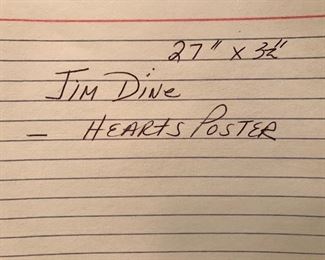 27" x 3½"
Jim Dine
– Hearts Poster